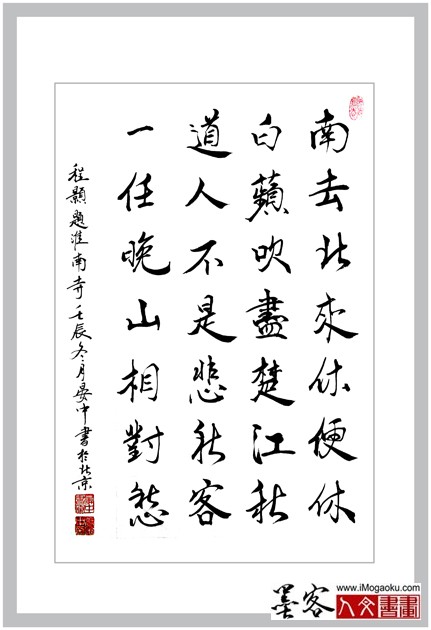 南去北來休便休
白蘋吹盡楚江秋
道人不是悲秋客
一任晚山相對愁
程顥題淮南寺壬辰冬月晏中書於北京
墨客
www.iMogaoku.com
人文書畫